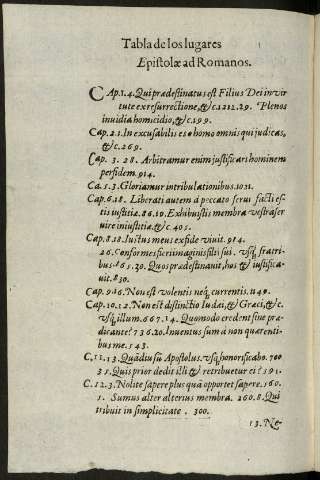 Tabla de los lugares
Epistolæ ad Romanos.
CAp.1.4. Qui prædestinatus est Filius Dei in vir
tute ex resurrectione, &c. 1212.29. Plenos
inuidia homicidio, &c. 199.
Cap. 2.1. In excusabilis es o homo omnis qui judicas,
&c. 269.
Cap. 3. 28. Arbitramur enim justificari hominem
per fidem. 914.
Ca. 5.3. Gloriamur in tribulationibus. 1021.
Cap. 6.18. Liberati autem à peccato serui facti es-
tis iustitiæ. 86.19. Exhibuistis membra vestra ser
uire iniustitiæ, &c 405.
Cap. 8.18. Iustus meus ex fide viuit. 914.
26. Conformes fieri imaginis filii sui. vsq; fratri-
bus. 165.29. Quos prædestinauit, hos & iustifica-
uit. 830.
Cap. 9.16. Non est volentis neq; currentis. 1140.
Cap. 10.12. Non est distinctio Iudæi, & Græci, &c.
vsq; illum. 667.14. Quomodo credent sine præ-
dicante? 736.20. Inuentus sum à non quærenti-
bus me. 543.
C. 11.13. Quãdiu sũ Apostolus. vsq; honorificabo. 700
35. Quis prior dedit illi & retribuetur ei? 591.
C. 12.3. Nolite sapere plus quã opportet sapere. 560.
5. Sumus alter alterius membra. 260.8. Qui
tribuit in simplicitate. 300.
13. Ne